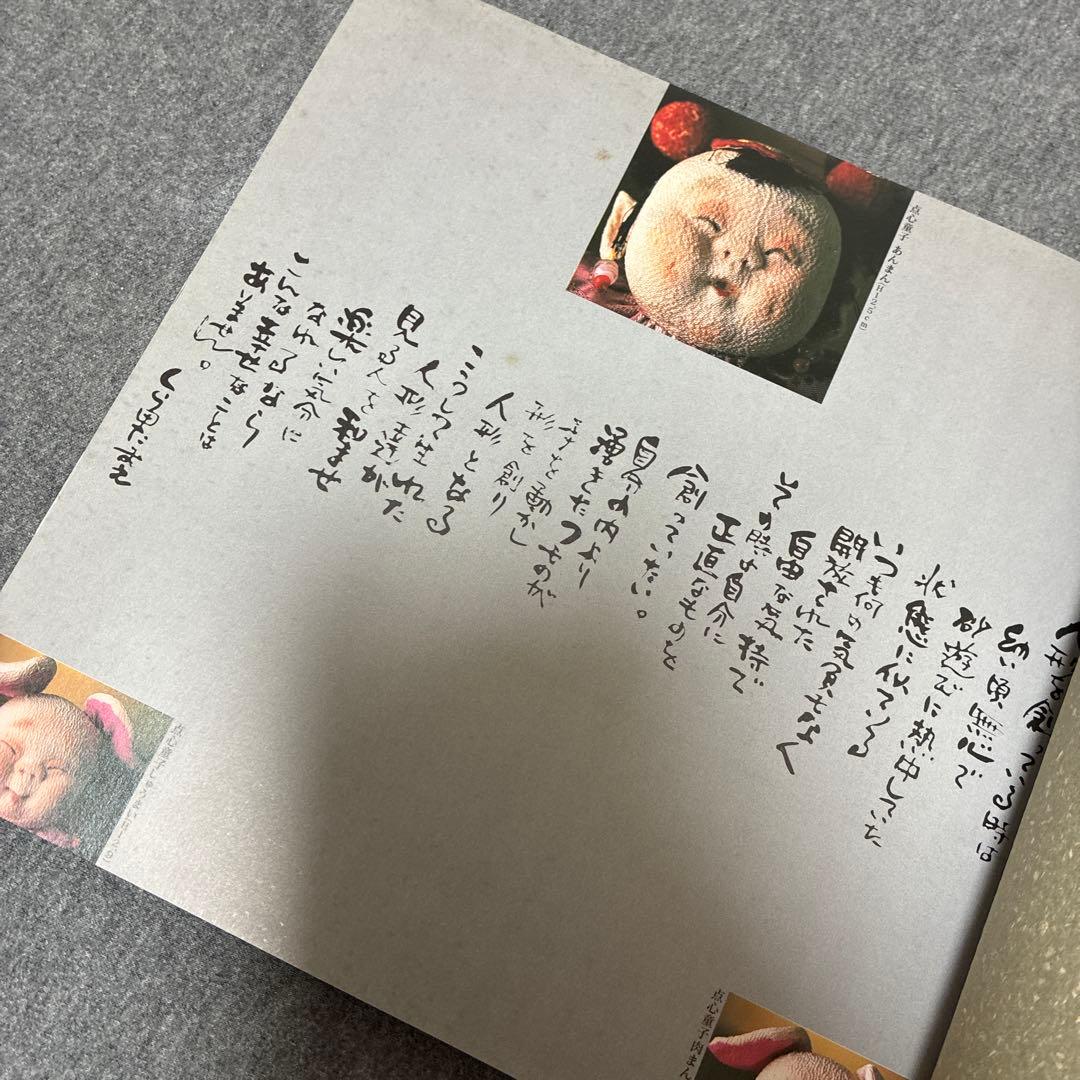 人形を創っている時は
幼い頃無心で
砂遊びに熱中していた
状態に似ている
いつも何の気負もなく
開放された
自由な気持で
その時の自分に
正直なものを
創っていたい。
自分の内より
湧きたつものが
手を動かし
形を創り
人形となる
こうして生れた
人形達が
見る人を和ませ
楽しい気分に
なれるなら
こんな幸せなことは
ありません。
点心童子 あんまん(H12.5cm)
点心童子
点心童子 肉まん